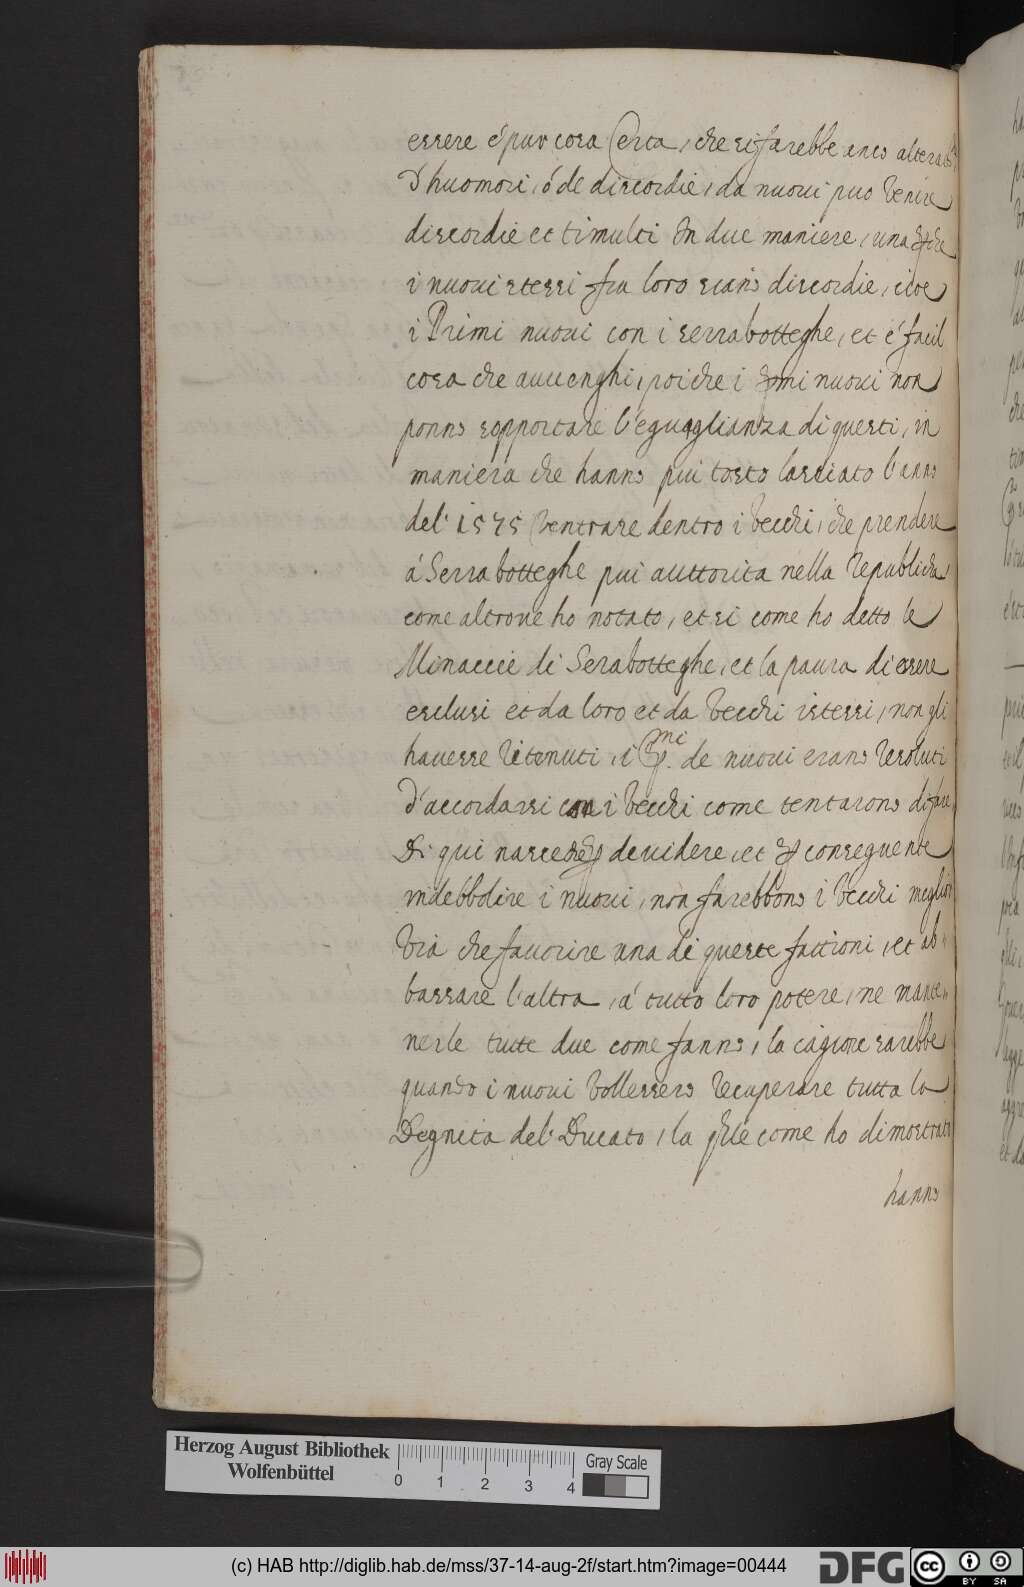 essere é pur cosa Certa, che si farebbe anco alterat.ne
d'huomori, ó de discordie, da nuoui puo Venire
discordie et timulti In due maniere, una é che
i nuoui stessi fra loro siano discordie, cioe
i Primi nuoui con i serrabotteghe, et é facil
cosa che auuenghi, poiche i p̃mi nuoui non
ponno sopportare l'eguaglianza di questi, in
maniera che hanno piu tosto lassiato l'anno
del' 1575 Ventrare dentro i Vecchi, che prendere
á Serrabotteghe piu auttorita nella Republicha
come altroue ho notato, et si come ho detto le
Minaccie di Serabotteghe, et la paura di essere
esclusi et da loro et da Vecchi istessi, non gli
hauesse Ritenuti, i P.mi de nuoui erano Resoluti
d'accordarsi con i Vecchi come tentarono di fare
Di qui nasce che p deuidere, et p conseguente
indebbolire i nuoui, non farebbono i Vecchi meglior
Via che fauorire una di queste fattioni, et ab=
bassare l'altra, á tutto loro potere, ne mante=
nerle tutte due come fanno, la cagione sarebbe
quando i nuoui Vollessero Recuperare tutta la
Degnita del' Ducato, la q̃le come ho dimostrato
hanno
Herzog August Bibliothek
Wolfenbüttel
0 1 2 3 4
Gray Scale
(c) HAB http://diglib.hab.de/mss/37-14-aug-2f/start.htm?image=00444
DFG
cc BY SA